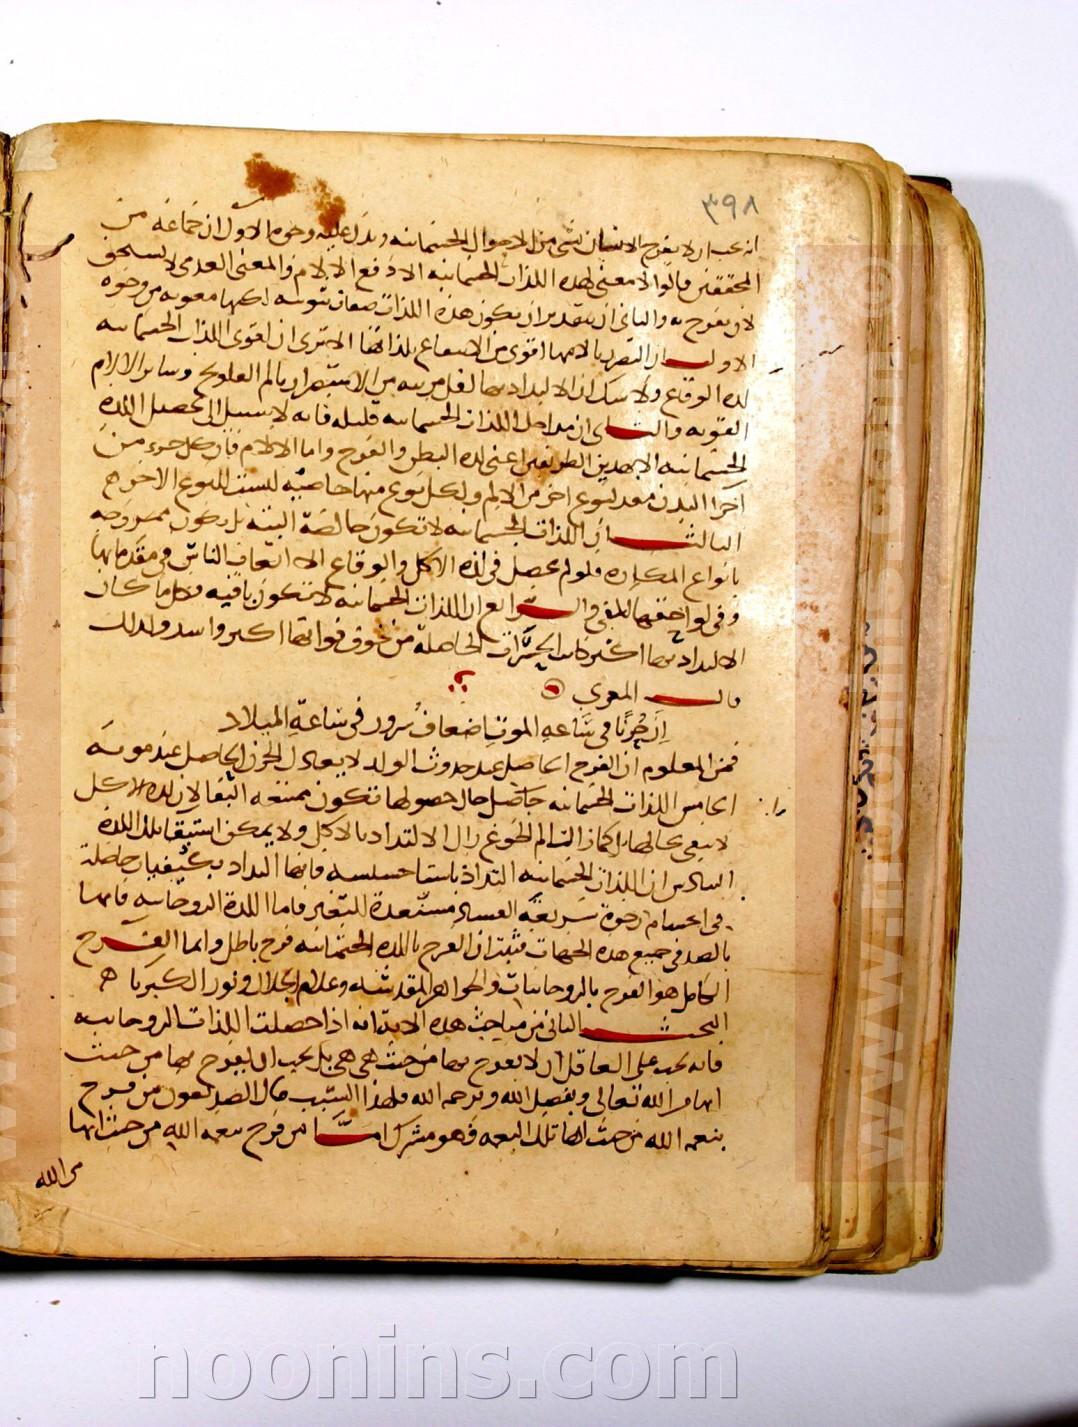 ٣٩٨
انه يجب ان لا يفرح الانسان بشي من الاحوال الجسمانيه ويدل عليه وجوه الاول ان جماعه من
المحققين قالوا لا معنى لهذه اللذات الجسمانيه الا دفع الالام والمعنى العدمي لا يستحق
لان يفرح به والثاني ان بتقدير ان يكون هذه اللذات صفات ثبوتيه لكنها معنوبه من وجوه
الاول ان التضرر بالامها اقوى من الانتفاع بلذاتها الا ترى ان اقوى اللذات الجسمانيه
لذه الوقاع ولا شك ان الالتداد بها اقل مرتبه من الاستضرار بالم القولنج وسائر الالام
القويه والثاني ان مداخل اللذات الجسمانيه قليله فانه لا سبيل الى تحصيل اللذه
الجسمانيه الا بهدين الطريقين اعني لذه البطن والفرج واما الالام فان كل جزء من
اجزا البدن معه لنوع اخر من الالم ولكل نوع منها خاصيه ليست للنوع الاخر ه
الثالث ان اللذات الجسمانيه لا تكون خالصة البتة بل تكون ممزوجه
بانواع المكاره فلو لم يحصل في لذه الاكل والوقاع الا اتعاب الناس في مقدماتها
وفي لواحقها لكفى والرابع ان اللذات الجسمانيه لا تكون باقيه فكل ما كان
الالتداد بها اكثر كانت الحسرات الحاصلة من خوف فواتها اكبر واشد ولذلك
قال المعري
ان حزنا في ساعة الموت اضعاف سرور في ساعة الميلاد
فمن المعلوم ان الفرح الحاصل عند حدوث الولد لا يعادل الحزن الحاصل عند موته
الخامس اللذات الجسمانيه حاصل حال حصولها تكون ممتنعه البقا لان لذه الاكل
لا تبقى بحالها بل كما زال الم الجوع زال الالتداد بالاكل ولا يمكن استبقا تلك اللذه
السادس ان اللذات الجسمانيه التداد باشيا خسيسه فانها التداد بكيفيات حاصلة
في اجسام رخوة سريعة الفساد مستعدة للتغير فاما اللذة الروحانيه فانها
بالضد في جميع هذه الجهات فثبت ان الفرح باللذه الجسمانيه فرح باطل واما الفرح
الكامل هو الفرح بالروحانيات والجواهر المقدسه وعالم الجلال ونور الكبريا ه
البحث الثاني من مباحث هذه الايه انه اذا حصلت اللذات الروحانيه
فانه يجب على العاقل ان لا يفرح بها من حيث هي هي بل يجب ان يفرح بها من حيث
انها من الله تعالى وبفضل الله وبرحمه الله فلهذا السبب قال الصديقون من فرح
بنعمه الله من حيث انها تلك النعمه فهو مشرك اما من فرح بنعمه الله من حيث انها
من الله
noonins.com